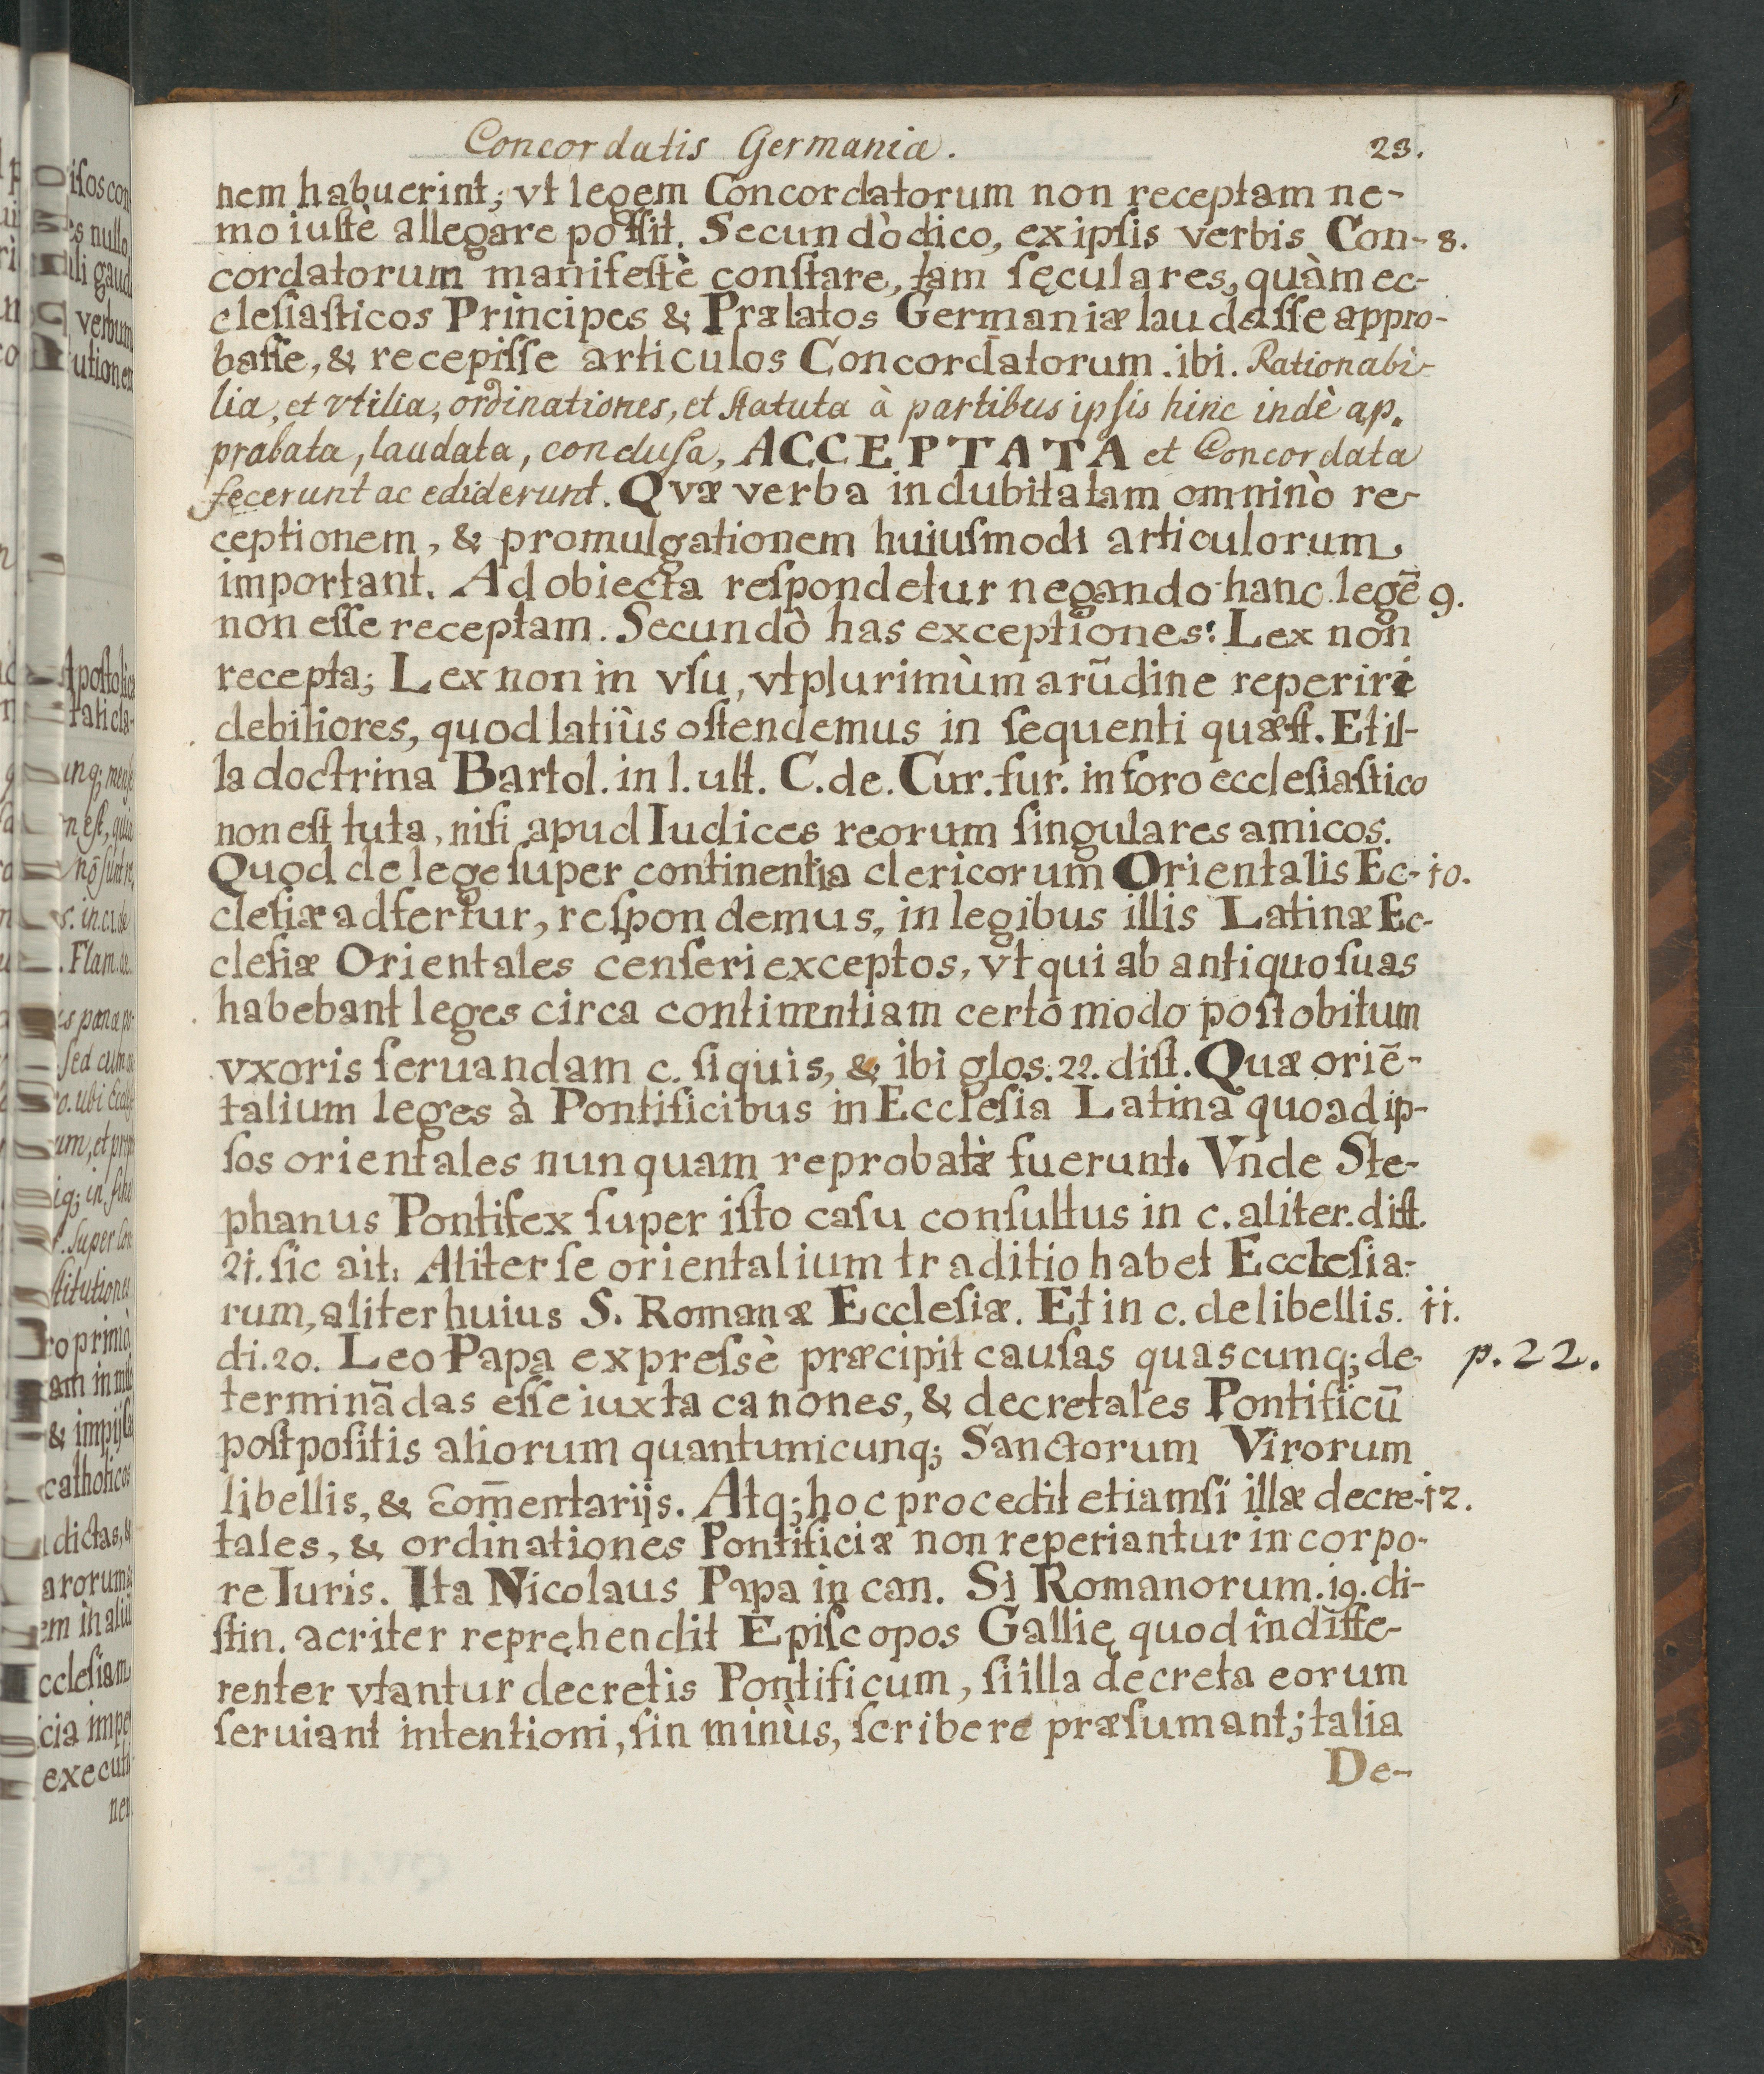 Concordatis Germaniæ. 23.
nem habuerint; vt legem Concordatorum non receptam ne-
mo iuſtè allegare poſſit. Secundò dico, ex ipſis verbis Con- 8.
cordatorum manifeſtè conſtare, tam ſęculares, quàm ec-
cleſiaſticos Principes & Prælatos Germaniæ laudaſſe appro-
baſſe, & recepiſſe articulos Concordatorum. ibi. Rationabi-
lia, et vtilia, ordinationes, et ſtatuta à partibus ipſis hinc indè ap.
prabata, laudata, concluſa, ACCEPTATA et Concordata
fecerunt ac ediderunt. Qvæ verba indubitatam omninò re-
ceptionem, & promulgationem huiuſmodi articulorum,
important. Ad obiecta reſpondetur negando hanc legē 9.
non eſſe receptam. Secundò has exceptiones: Lex non
recepta; Lex non in vſu, vt plurimùm arūdine reperiri
debiliores, quod latiùs oſtendemus in ſequenti quæſt. Et il-
la doctrina Bartol. in l. ult. C. de. Cur. fur. in foro eccleſiaſtico
non eſt tuta, niſi apud Iudices reorum ſingulares amicos.
Quod de lege ſuper continentia clericorum Orientalis Ec- 10.
cleſiæ adfertur, reſpondemus, in legibus illis Latinæ Ec-
cleſiæ Orientales cenſeri exceptos, vt qui ab antiquo ſuas
habebant leges circa continentiam certo modo poſt obitum
vxoris ſeruandam c. ſi quis, & ibi glos. 22. diſt. Quæ oriē-
talium leges à Pontificibus in Eccleſia Latina quoad ip-
ſos orientales nunquam reprobatæ fuerunt. Vnde Ste-
phanus Pontifex ſuper iſto caſu conſultus in c. aliter. diſt.
21. ſic ait: Aliter ſe orientalium traditio habet Eccleſia-
rum, aliter huius S. Romanæ Eccleſiæ. Et in c. de libellis. 11.
di. 20. Leo Papa expreſsè præcipit cauſas quascunq; de- p. 22.
terminādas eſſe iuxta canones, & decretales Pontificū
poſtpoſitis aliorum quantumcunq; Sanctorum Virorum
libellis, & com̄entarijs. Atq; hoc procedit etiamſi illæ decre- 12.
tales, & ordinationes Pontificiæ non reperiantur in corpo-
re Iuris. Ita Nicolaus Papa in can. Si Romanorum. 19. di-
ſtin. acriter repręhendit Epiſcopos Gallię quod indiffe-
renter vtantur decretis Pontificum, ſi illa decreta eorum
ſeruiant intentioni, ſin minùs, ſcribere præſumant; talia
De-